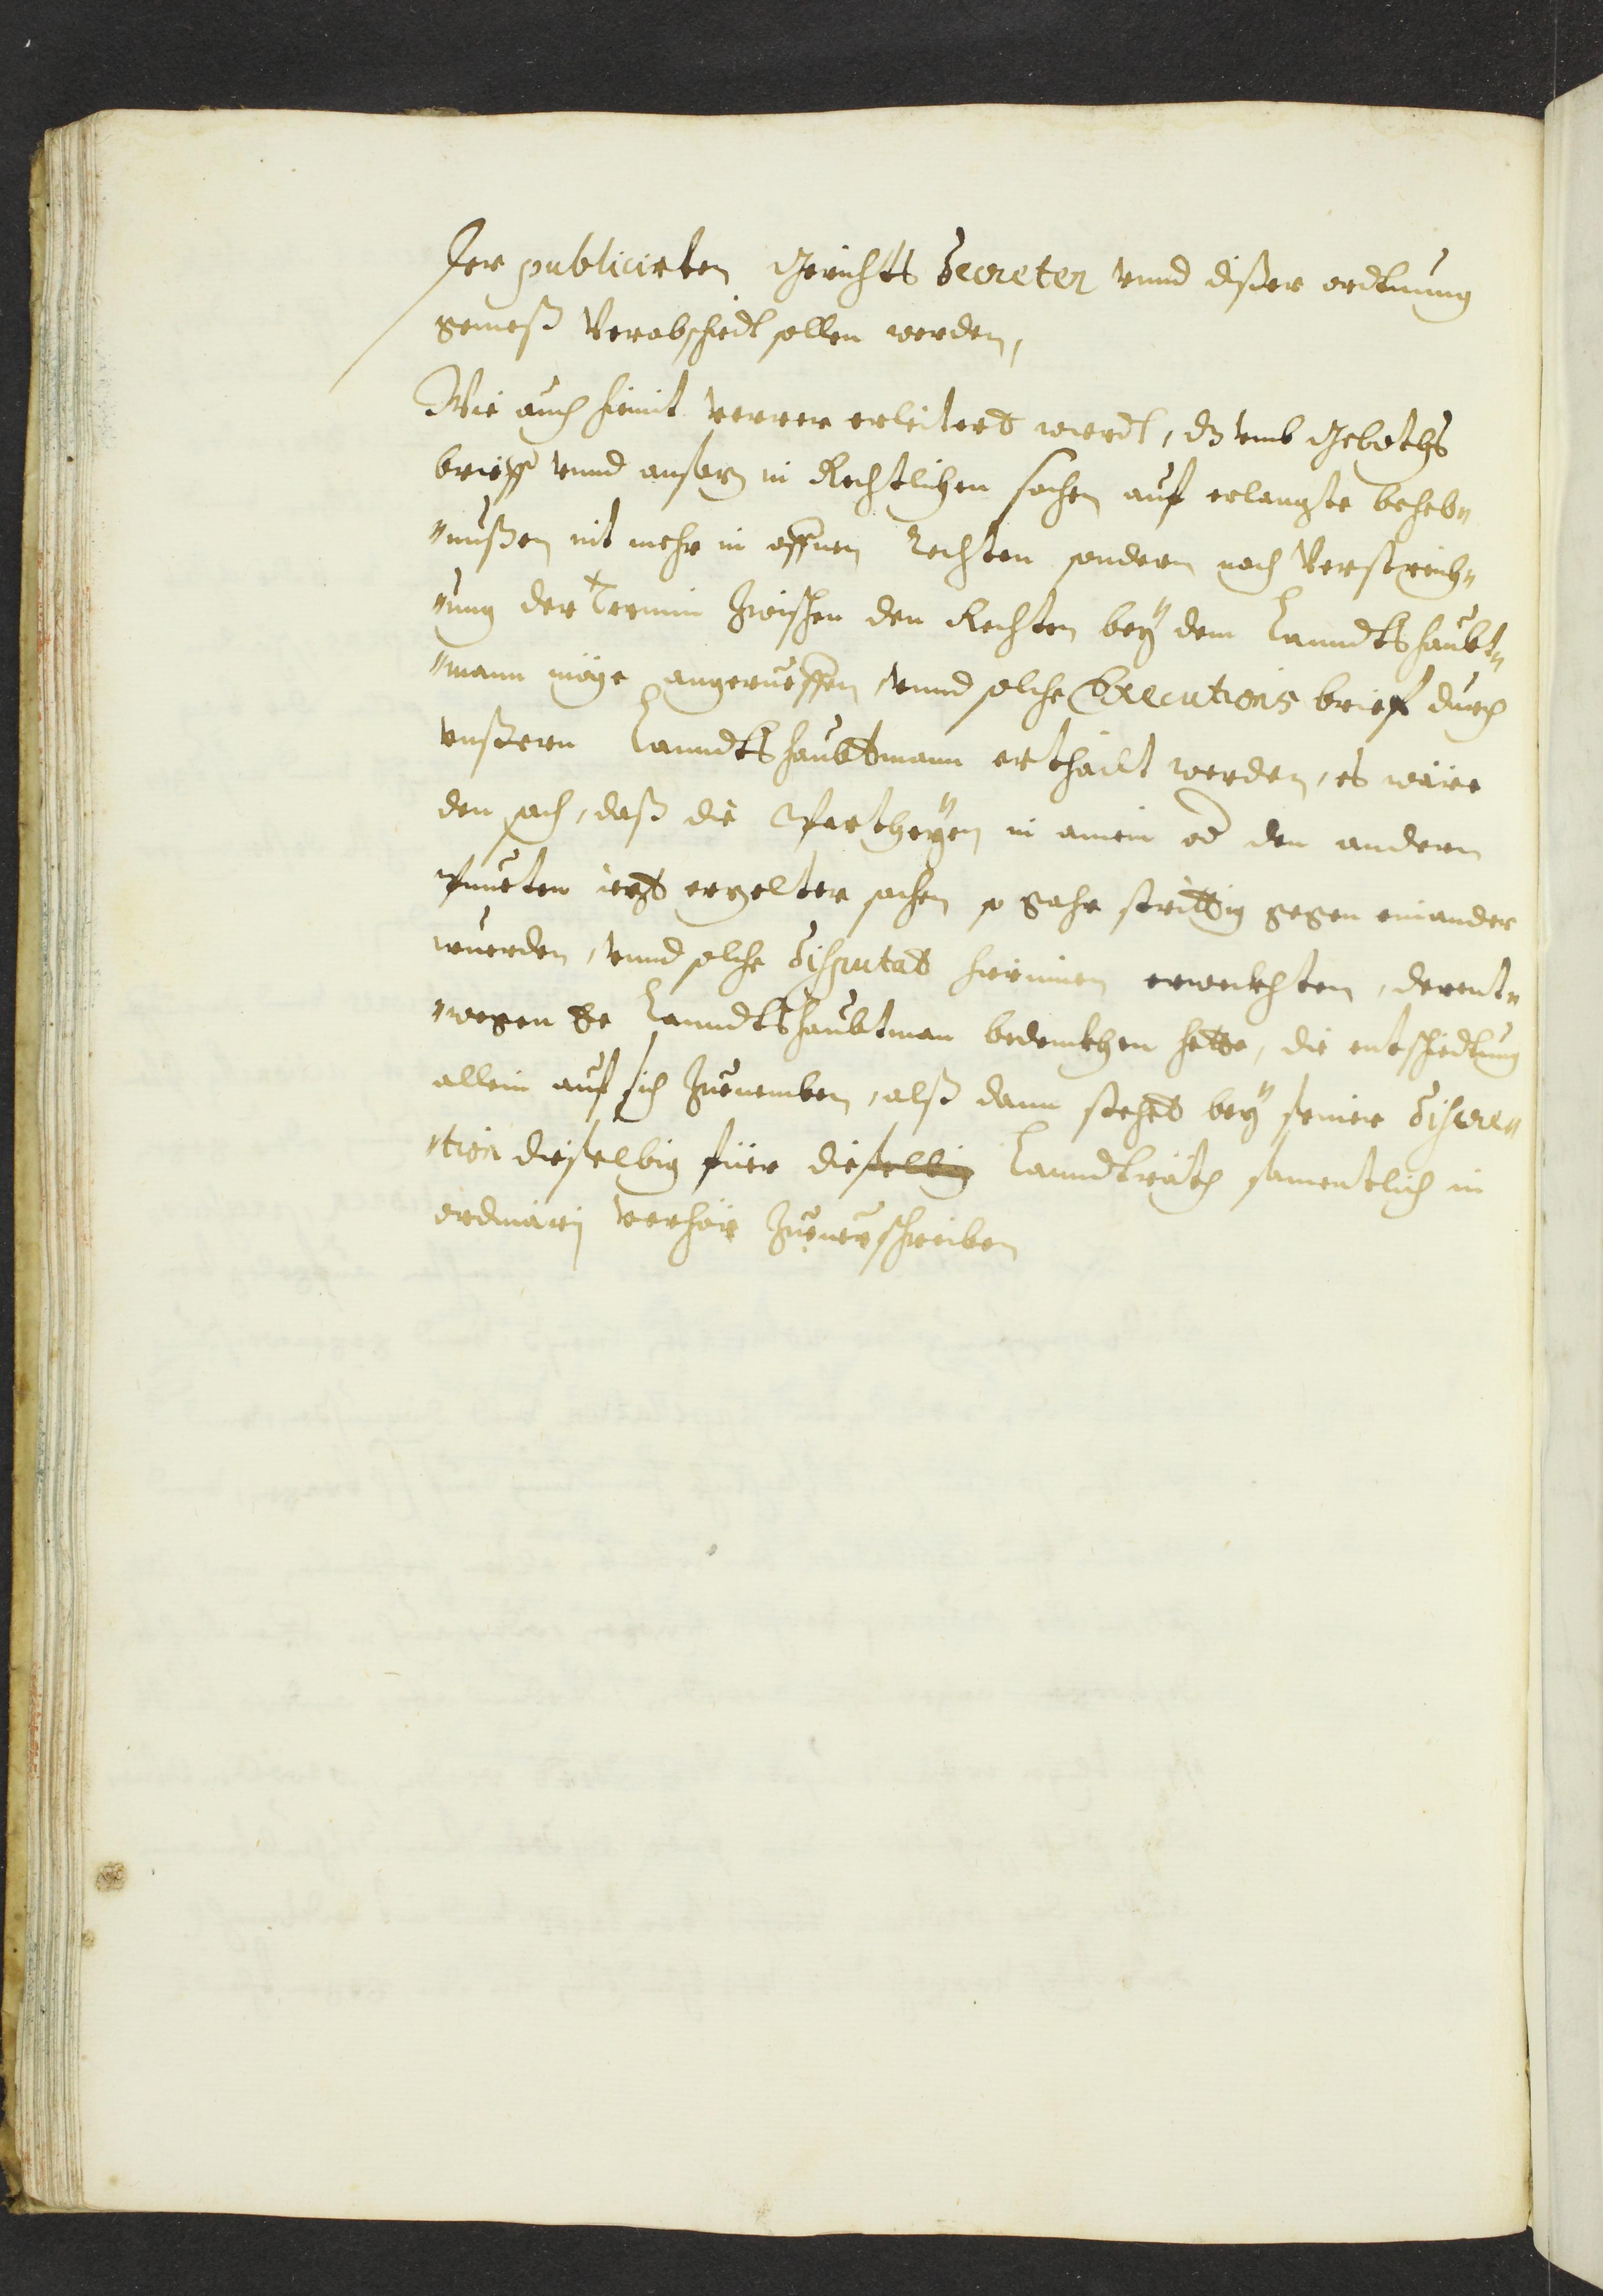 der publicirten Gerichts Decreten vnnd dißer ordtnung
gemeß Verabschidt sollen werden,
Wie auch hiemit verrer erleitert wirdt, dz vmb Geboths
brieff vnnd ansaz in Rechtlichen sachen auf erlangte beheb„
„nußen nit mehr in offnen Rechten sondern nach Verstreich„
„ung der Termin Zwischen den Rechten beÿ dem Lanndtshaubt„
„mann möge angerueffen, vnnd solche Executions brief durch
vnßeren Lanndtshaubtmann erthailt werden, es wäre
den sach, daß die Partheÿen in ainem od den andern
Puncten iezt erzelter sachen so gahr strittig gegen einander
wuerden, vnnd solche Disputat hierinnen erwekhten, derent„
„wegen Er Lanndtshaubtman bedenkhen hette, die entschiedtung
allein auf sich Zuenemben, alß dann stehet beÿ seiner Discre„
„tion dieselbig füer dieselbig Lanndträth samentlich in
ordinarj verhör Zueuerschreiben